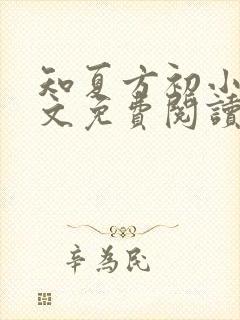 知夏方初小
文免費閱讀
辛為民